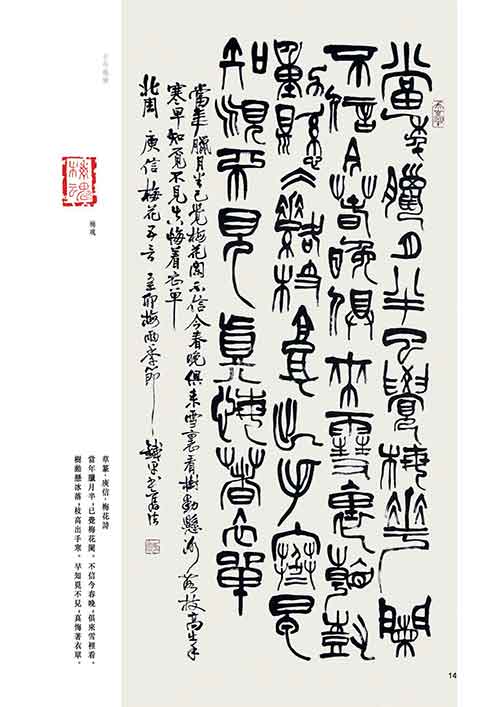 當年臘月半已覺梅花闌
不信今春晚俱來雪裏看樹
動懸冰落枝高出手寒早
知覓不見真悔著衣單
當年臘月半已覺梅花闌不信今春晚俱來雪裏看樹動懸冰落枝高出手
寒早知覓不見真悔着衣單
北周庾信梅花五言 梅雨季節
梅魂
梅魂
草篆·庾信·梅花詩
當年臘月半，已覺梅花闌。不信今春晚，俱來雪裡看。
樹動懸冰落，枝高出手寒。早知覓不見，真悔著衣單。
14